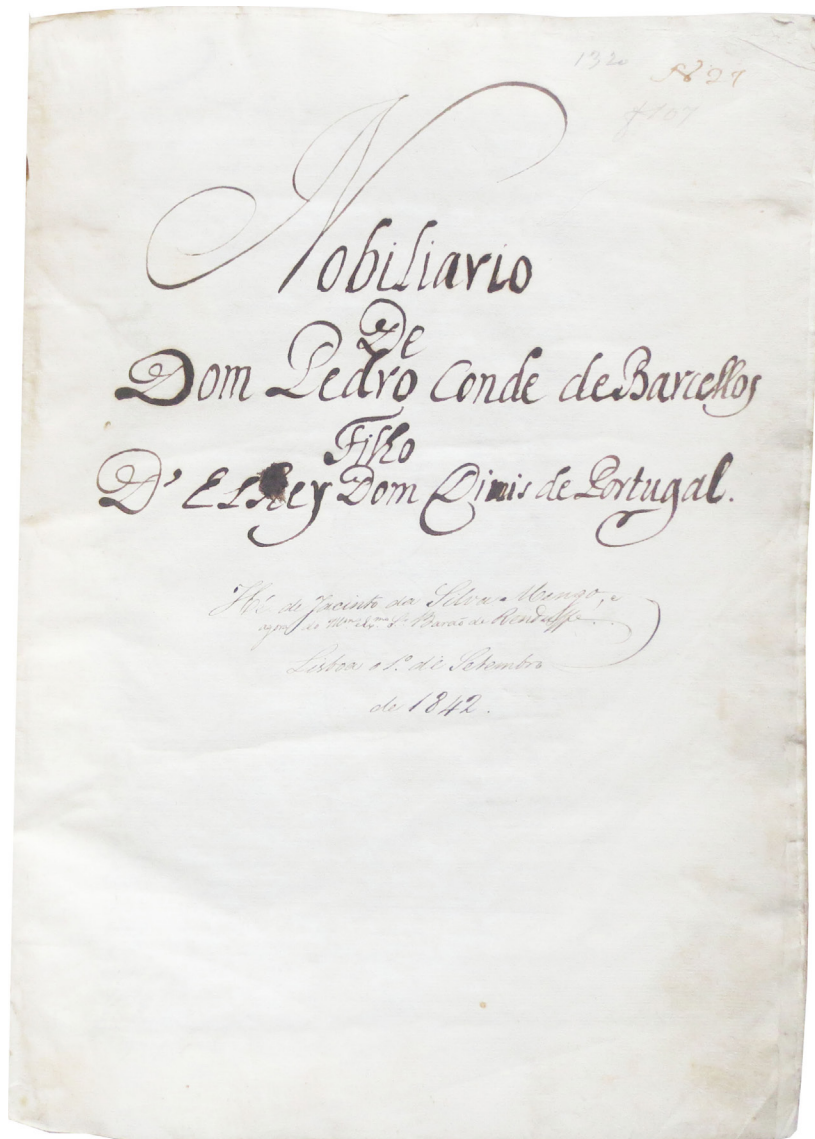 1320 Nº 27
f 107
Nobiliario
De
Dom Pedro Conde de Barcellos
Filho
D' ElRey Dom Dinis de Portugal.
Hé de Jacinto da Silva Mengo, e
agora do Illmo Exmo Sr. Barão de Renduffe.
Lisboa o 1º de Setembro
de 1842.